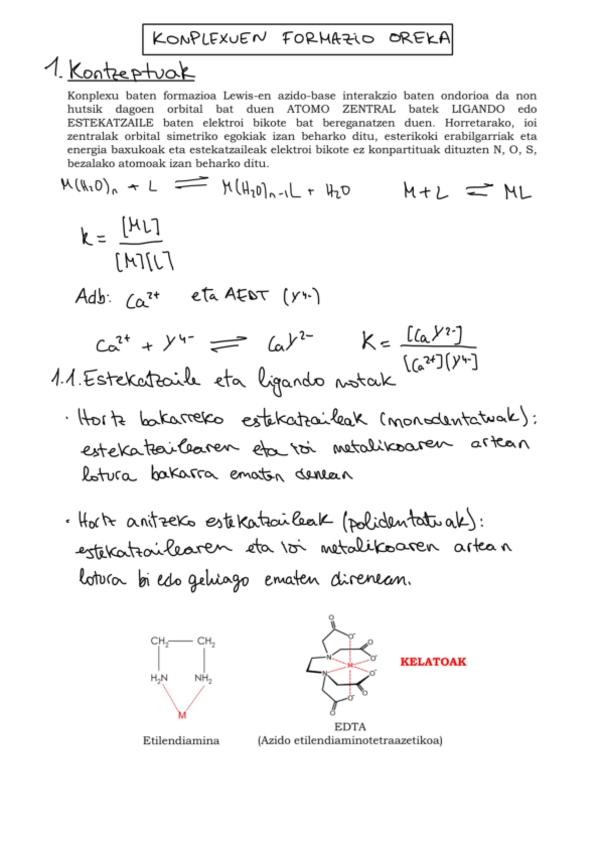 KONPLEXUEN FORMAZIO OREKA
1. Kontzeptuak
Konplexu baten formazioa Lewis-en azido-base interakzio baten ondorioa da non
hutsik dagoen orbital bat duen ATOMO ZENTRAL batek LIGANDO edo
ESTEKATZAILE baten elektroi bikote bat bereganatzen duen. Horretarako, ioi
zentralak orbital simetriko egokiak izan beharko ditu, esterikoki erabilgarriak eta
energia baxukoak eta estekatzaileak elektroi bikote ez konpartituak dituzten N, O, S,
bezalako atomoak izan beharko ditu.
M(H₂O)n + L ⇌ M(H₂O)n-1L + H₂O M+L ⇌ ML
k = [ML] / [M][L]
Adb: Ca²⁺ eta AEDT (Y⁴⁻)
Ca²⁺ + Y⁴⁻ ⇌ CaY²⁻ K = [CaY²⁻] / [Ca²⁺][Y⁴⁻]
1.1. Estekatzaile eta ligando motak
· Hortz bakarreko estekatzaileak (monodentatuak):
estekatzailearen eta ioi metalikoaren artean
lotura bakarra ematen denean
· Hortz anitzeko estekatzaileak (polidentatuak):
estekatzailearen eta ioi metalikoaren artean
lotura bi edo gehiago ematen direnean.
CH₂ CH₂
H₂N NH₂
M
O O⁻ O O⁻ N M N O⁻ O O⁻ O
KELATOAK
EDTA
Etilendiamina (Azido etilendiaminotetraazetikoa)